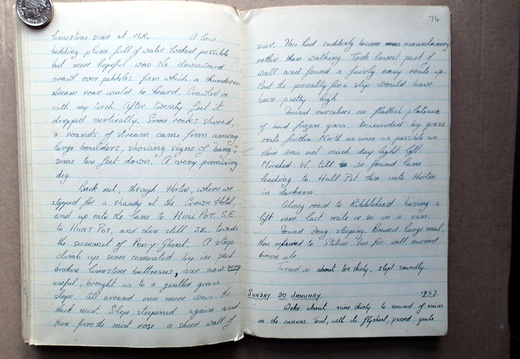 limestone scar at O.K. A low
bedding plane full of water looked possible
but more hopeful was the downward
crawl over pebbles from which a thunderous
stream roar could be heard. Crawled in
with my torch. After twenty feet it
dropped vertically. Some rocks shored,
& sounds of stream came from among
large boulders, showing signs of being
some ten feet down. A very promising
dig.
Back out, through Horton, where we
stopped for a shandy at the Crown Hotel,
and up into the lane to HULL POT. S.E.
to HUNT POT, and then still S.E. towards
the summit of Pen-y-Ghent. A steep
climb up some cemented by ice past
broken limestone buttresses, ice now very
useful, brought us to a gentler grass
slope. All around once more was the
thick mist. Slope steepened again and
then from the mist rose a sheer wall of
74
scar. This had suddenly become mountaineering
rather than walking. Took lowest part of
wall and found a fairly easy route up.
But the penalty for a slip would have
been pretty high.
Found ourselves on flattish plateau
of hard frozen grass. Descended by grass
route further North as soon as possible as
there was not much day light left.
Marched W. till we found lane
leading to Hull Pot then into Horton
in darkness.
Along road to Ribblehead having a
lift over last mile or so in a van.
Found Doug sleeping. Brewed large meal,
then repaired to Station Inn for well earned
brown ale.
Turned in about ten thirty, slept soundly.
SUNDAY 20 JANUARY. 1957.
Woke about nine thirty to sound of rain
on the canvas. Tent, with its flysheet, proved quite